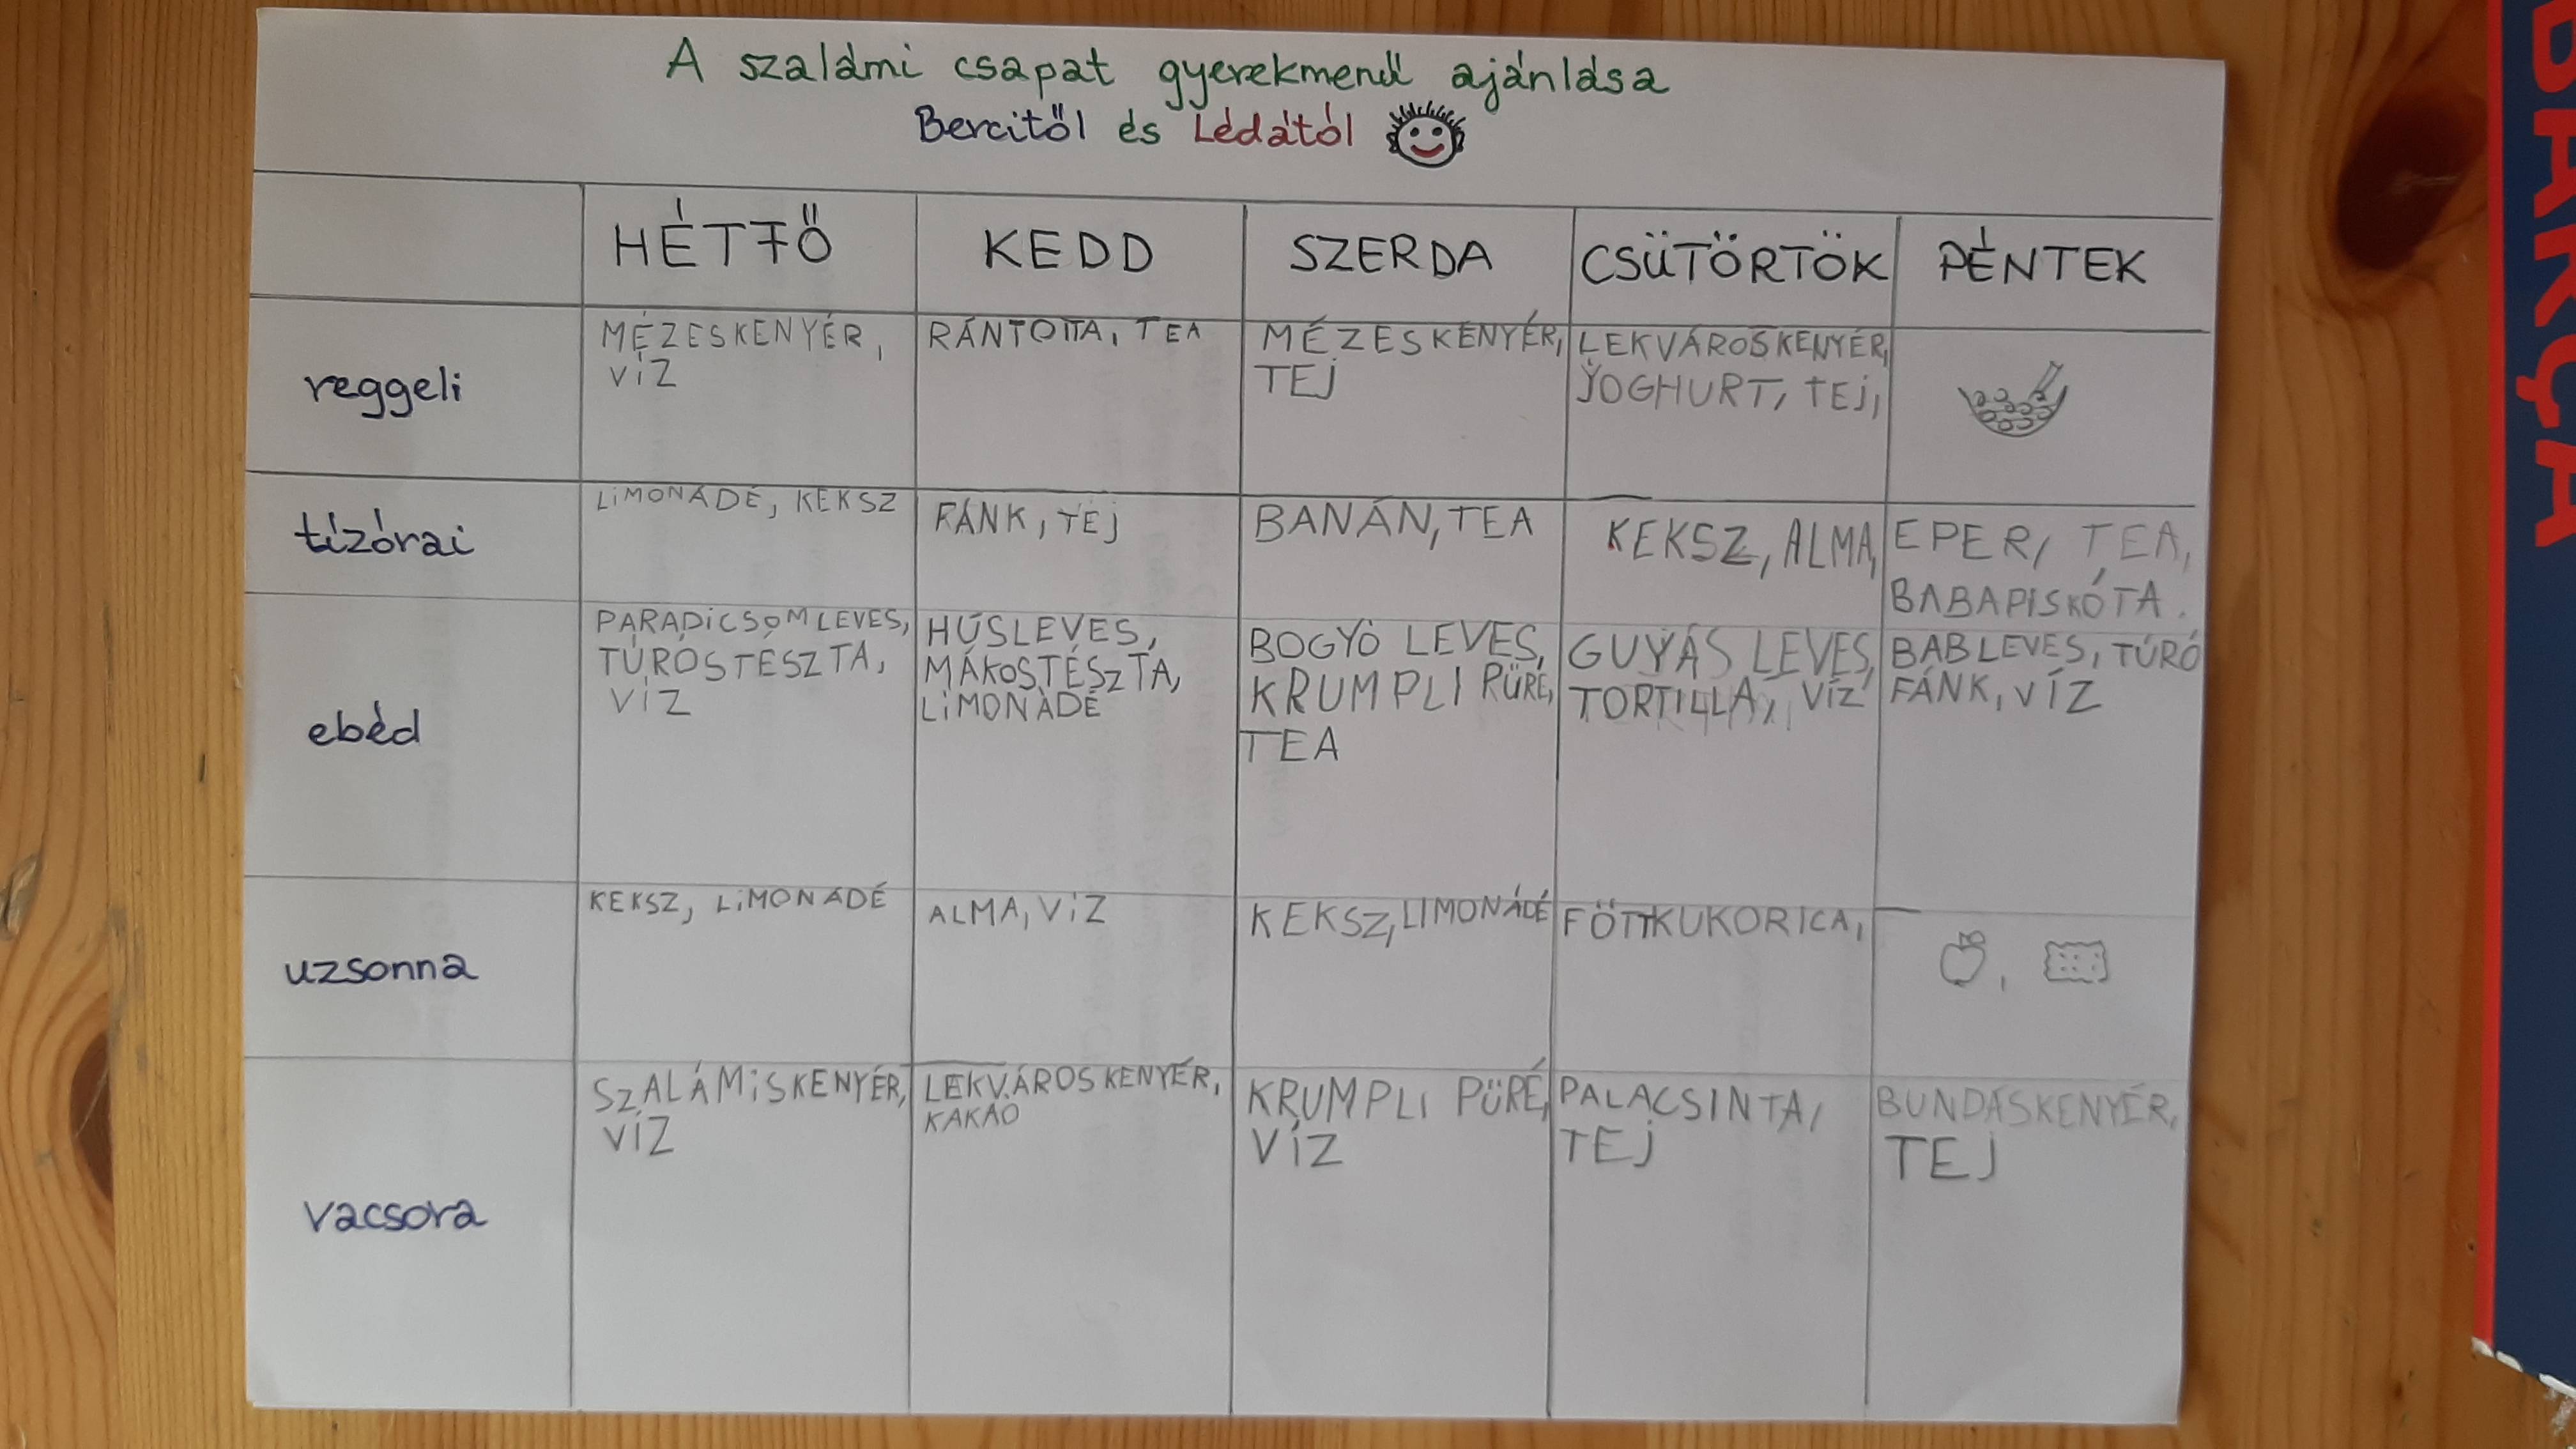 A szalámi csapat gyerekmenü ajánlása
Bercitől és Lédától
HÉTFŐ KEDD SZERDA CSÜTÖRTÖK PÉNTEK
reggeli
MÉZESKENYÉR,
VÍZ
RÁNTOTTA, TEA
MÉZESKENYÉR,
TEJ
LEKVÁROSKENYÉR,
JOGHURT, TEJ,
tízórai
LIMONÁDÉ, KEKSZ
FÁNK, TEJ
BANÁN, TEA
KEKSZ, ALMA,
EPER, TEA,
BABAPISKÓTA.
ebéd
PARADICSOMLEVES,
TÚRÓSTÉSZTA,
VÍZ
HÚSLEVES,
MÁKOSTÉSZTA,
LIMONÁDÉ
BOGYÓ LEVES,
KRUMPLI PÜRÉ,
TEA
GUYÁS LEVES,
TORTILLA, VÍZ
BABLEVES, TÚRÓ
FÁNK, VÍZ
uzsonna
KEKSZ, LIMONÁDÉ
ALMA, VÍZ
KEKSZ, LIMONÁDÉ
FŐTTKUKORICA,
vacsora
SZALÁMISKENYÉR,
VÍZ
LEKVÁROSKENYÉR,
KAKAÓ
KRUMPLI PÜRÉ,
VÍZ
PALACSINTA,
TEJ
BUNDÁSKENYÉR,
TEJ
BAKÇA